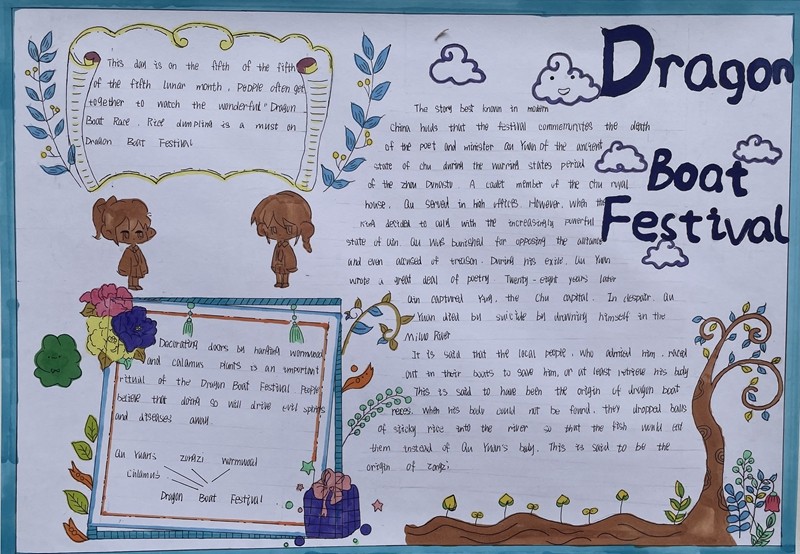 Dragon
Boat
Festival
This dan is on the fifth of the fifth
of the fifth lunar month. People often get
together to watch the wonderful "Dragon
Boat Race. Rice dumpling is a must on
Dragon Boat Festival
The story best known in modern
China holds that the festival commemorates the death
of the poet and minister Qu Yuan of the ancient
state of chu during the warring states period
of the zhou Dynasty. A cadet member of the chu royal
house. Qu served in high offices. However, when the
king decided to ally with the increasingly powerful
state of Qin. Qu was banished for opposing the alliance
and even accused of treason. During his exile, Qu Yuan
wrote a great deal of poetry. Twenty-eight years later
Qin captured Ying, the Chu capital. In despair. Qu
Yuan died by suicide by drowning himself in the
Miluo River
It is said that the local people, who admired him, raced
out in their boats to save him, or at least retrieve his body
This is said to have been the origin of dragon boat
races. When his body could not be found, they dropped balls
of sticky rice into the river so that the fish would eat
them instead of Qu Yuan's body. This is said to be the
origin of zongzi
Decorating doors by hanging wormwood
and calamus plants is an important
ritual of the Dragon Boat Festival People
believe that doing so will drive evil spirits
and diseases away.
Qu Yuan's zongzi wormwood
Calamus
Dragon Boat Festival